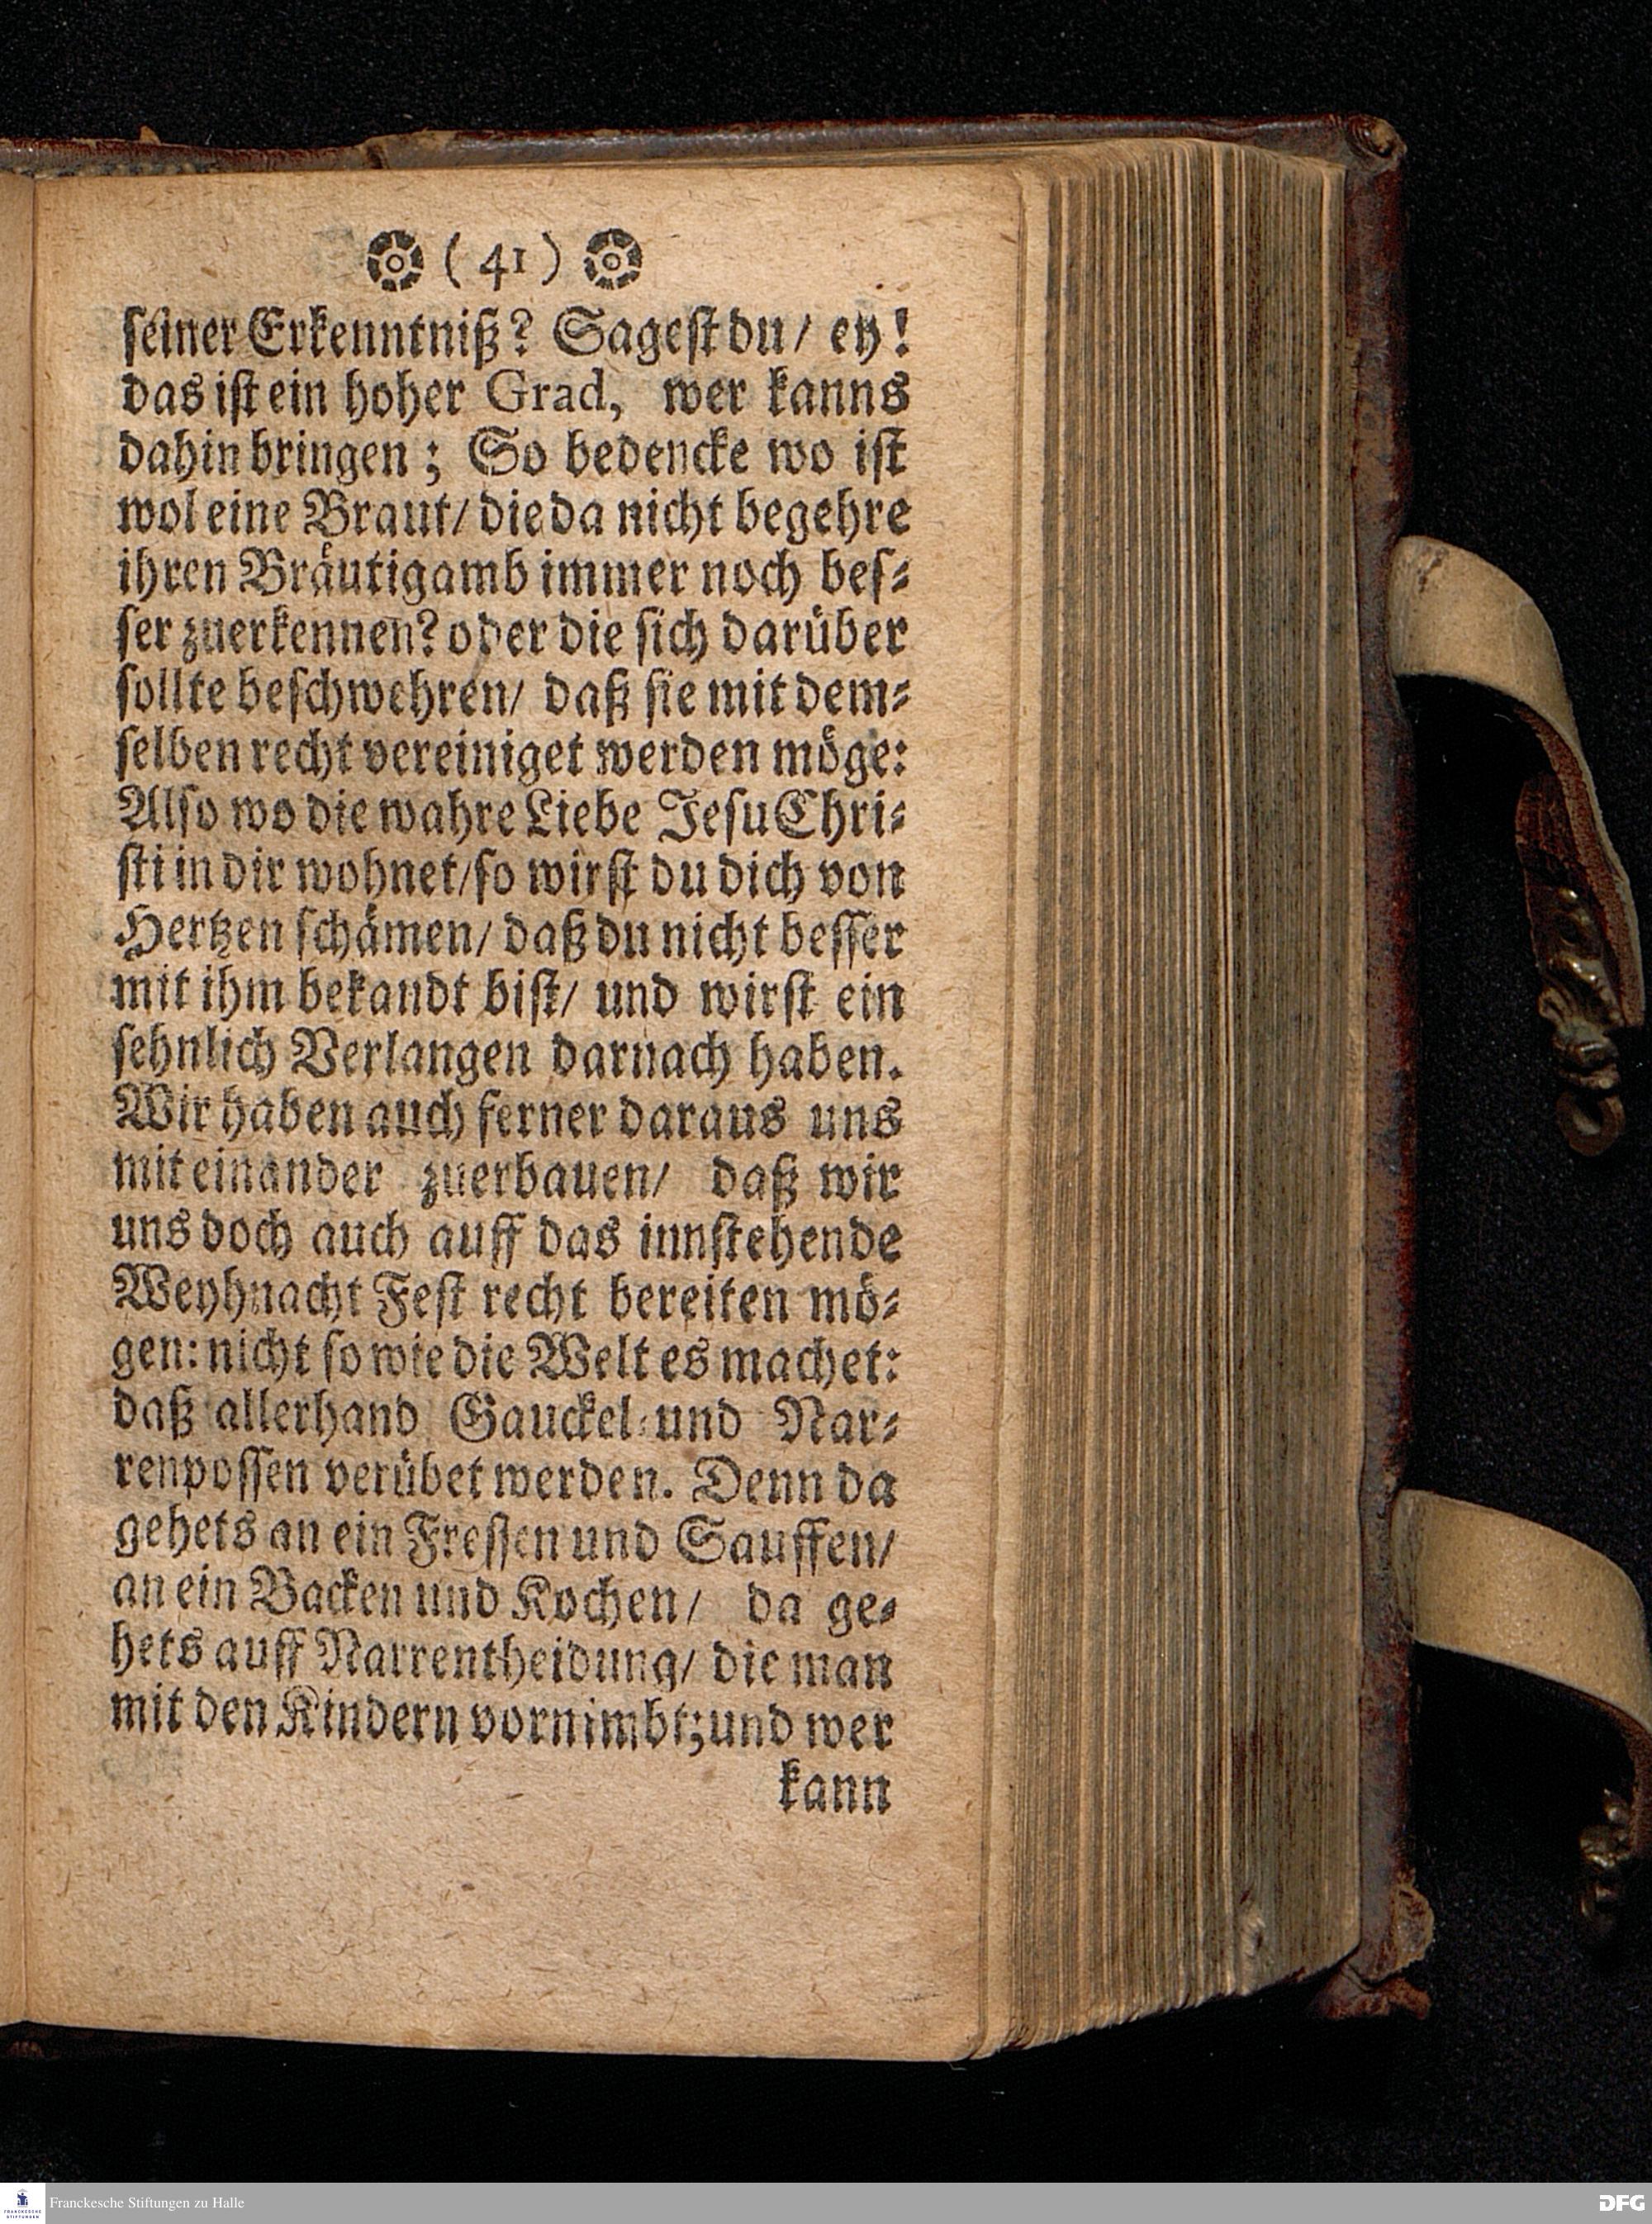 ( 41 )
seiner Erkenntniß? Sagest du/ ey!
das ist ein hoher Grad, wer kanns
dahin bringen; So bedencke wo ist
wol eine Braut/ die da nicht begehre
ihren Bräutigamb immer noch bes-
ser zuerkennen? oder die sich darüber
sollte beschwehren/ daß sie mit dem-
selben recht vereiniget werden möge:
Also wo die wahre Liebe Jesu Chri-
sti in dir wohnet/ so wirst du dich von
Hertzen schämen/ daß du nicht besser
mit ihm bekandt bist/ und wirst ein
sehnlich Verlangen darnach haben.
Wir haben auch ferner daraus uns
mit einander zuerbauen/ daß wir
uns doch auch auff das innstehende
Weyhnacht Fest recht bereiten mö-
gen: nicht so wie die Welt es machet:
daß allerhand Gauckel- und Nar-
renpossen verübet werden. Denn da
gehets an ein Fressen und Sauffen/
an ein Backen und Kochen/ da ge-
hets auff Narrentheidung/ die man
mit den Kindern vornimbt; und wer
kann
Franckesche Stiftungen zu Halle
FRANCKESCHE STIFTUNGEN
DFG